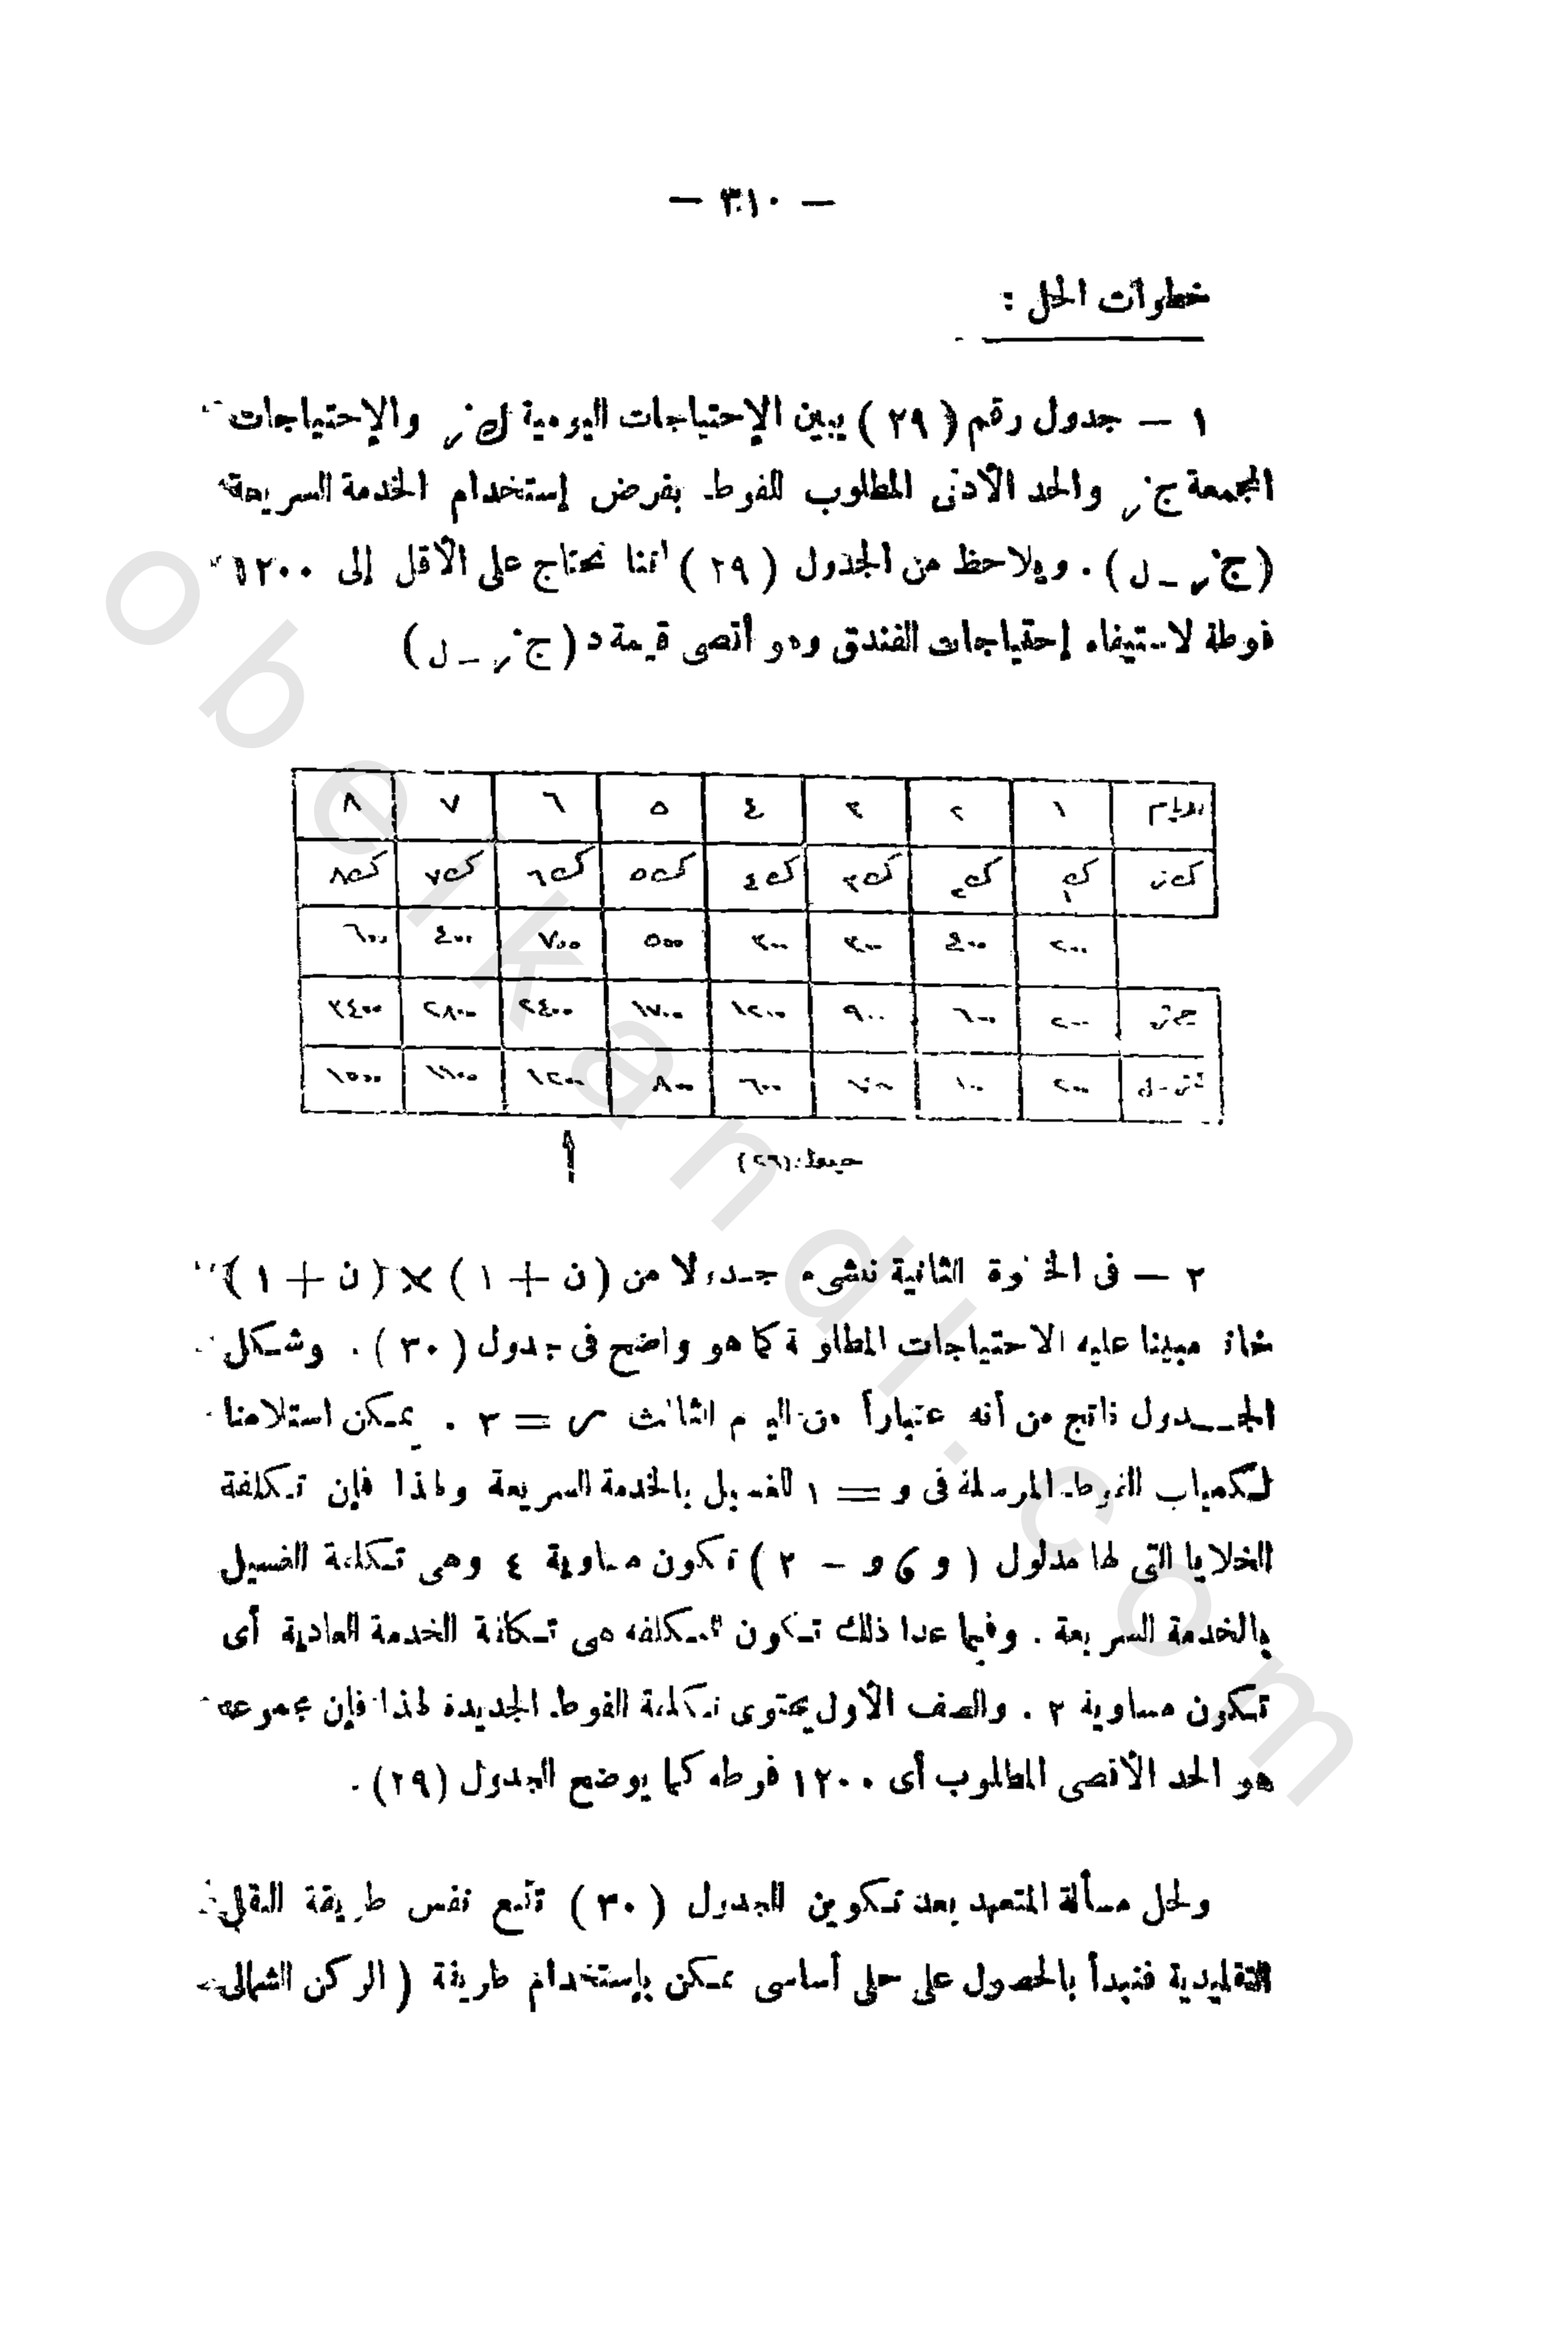 — ٣١٠ —
خطوات الحل :
١ — جدول رقم ( ٢٩ ) يبين الإحتياجات اليومية ك ن ر والإحتياجات
المجمعة ج ن ر والحد الأدنى المطلوب للفوط بفرض إستخدام الخدمة السريعة
( ج ن ر – ل ) . ويلاحظ من الجدول ( ٢٩ ) اننا نحتاج على الأقل إلى ١٢٠٠
فوطة لاستيفاء إحتياجات الفندق وهو أقصى قيمة د ( ج ن ر – ل )
الأيام ١ ٢ ٣ ٤ ٥ ٦ ٧ ٨
ك ن ك١ ك٢ ك٣ ك٤ ك٥ ك٦ ك٧ ك٨
٢٠٠ ٤٠٠ ٣٠٠ ٣٠٠ ٥٠٠ ٧٠٠ ٤٠٠ ٦٠٠
٢٠٠ ٦٠٠ ٩٠٠ ١٢٠٠ ١٧٠٠ ٢٤٠٠ ٢٨٠٠ ٣٤٠٠
٢٠٠ ٦٠٠ ٨٠٠ ١٢٠٠ ١١٠٠ ١٥٠٠
جدول (٢٩)
٢ — فى الخطوة الثانية ننشىء جدولا من ( ن + ١ ) × ( ن + ١ )
مبينا عليه الاحتياجات المطلوبة كما هو واضح فى جدول ( ٣٠ ) . وشكل
الجدول ناتج من أنه عتباراً من اليوم الثالث ر = ٣ . يمكن استلامنا
لكميات الفوط المرسلة فى و = ١ للغسيل بالخدمة السريعة ولهذا فإن تكلفة
الخلايا التى لها مدلول ( و ، و – ٢ ) تكون مساوية ٤ وهى تكلفة الغسيل
بالخدمة السريعة . وفيما عدا ذلك تكون التكلفه هى تكلفة الخدمة العادية أى
تكون مساوية ٢ . والصف الأول يحتوى تكلفة الفوط الجديدة لهذا فإن مجموعه
هو الحد الأقصى المطلوب أى ١٢٠٠ فوطه كما يوضح الجدول (٢٩) .
ولحل مسألة المتعهد بعد تكوين الجدول ( ٣٠ ) نتبع نفس طريقة النقل
التقليدية فنبدأ بالحصول على حل أساسى ممكن بإستخدام طريقة ( الركن الشمالى
obeikandl.com